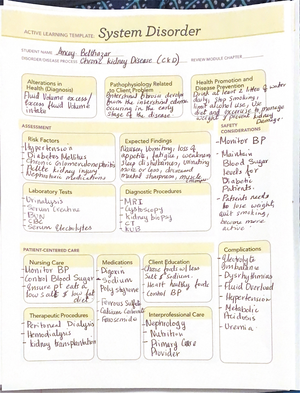 ACTIVE LEARNING TEMPLATE: System Disorder
STUDENT NAME Balthazar
DISORDER/DISEASE PROCESS Chronic kidney Disease (CKD) REVIEW MODULE CHAPTER
Alterations in
Health (Diagnosis)
Fluid Volume excess/
excess fluid Volume
intake
Pathophysiology Related
to Client Problem
Interstitial fibrosis develop
from the interstitial edema
occurring in the early
stage of the disease
Health Promotion and
Disease Prevention
Drink at least 2 liters of water
daily, Stop smoking,
limit alcohol use, Use
diet and exercise to manage
weight & prevent kidney
Damage
ASSESSMENT
SAFETY
CONSIDERATIONS
Risk Factors
- Hypertension
- Diabetes Mellitus
- Chronic glomerulonephritis
- Acute kidney injury
- Nephrotoxic medications
Expected Findings
Nausea, Vomiting, loss of
appetite, fatigue, weakness
Sleep disturbances, urinating
more or less, decreased
mental sharpness, muscle
cramps
- Monitor BP
- Maintain
Blood Sugar
levels for
Diabetic
Patients.
- Patients needs
to lose weight,
quit smoking,
become more
active.
Laboratory Tests
- Urinalysis
- Serum Creatinine
- BUN
- CBC
- Serum Electrolytes
Diagnostic Procedures
- MRI
- Cystoscopy
- Kidney biopsy
- CT
- KUB
PATIENT-CENTERED CARE
Complications
Nursing Care
- Monitor BP
- Control Blood Sugar
- Ensure pt eat a
low salt & low fat
diet
Medications
- Digoxin
- Sodium
Polystyrene
- Ferrous Sulfate
- Calcium Carbonate
- Furosemide
Client Education
- Choose foods w/ less
Salt & Sodium.
- Heart healthy foods
- Control BP
- Electrolyte
Imbalance
- Dysrhythmias
- Fluid Overload
- Hypertension
- Metabolic
Acidosis
- Uremia
Therapeutic Procedures
- Peritoneal Dialysis
- Hemodialysis
- kidney transplantation
Interprofessional Care
- Nephrology
- Nutrition
- Primary Care
Provider